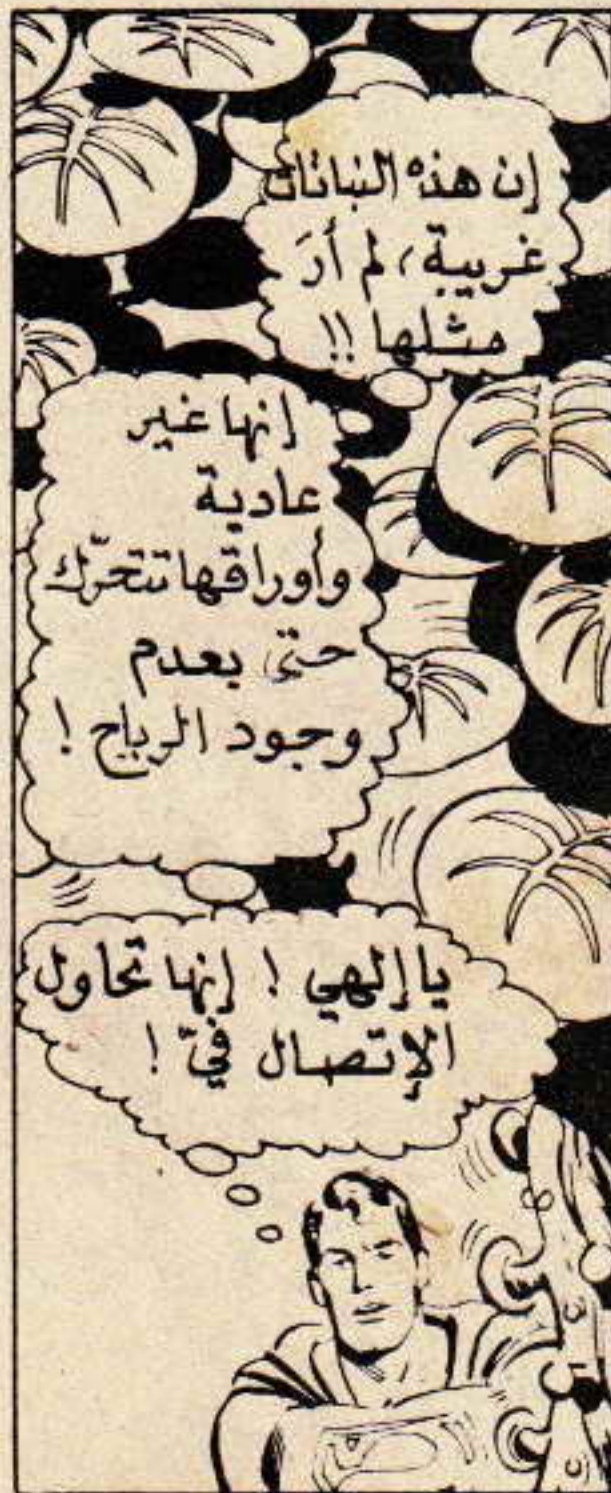 إن هذه النباتات
غريبة، لم أرَ
مثلها !!
إنها غير
عادية
وأوراقها تتحرّك
حتى بعدم
وجود الرياح !
يا إلهي ! إنها تحاول
الإتصال فيّ !